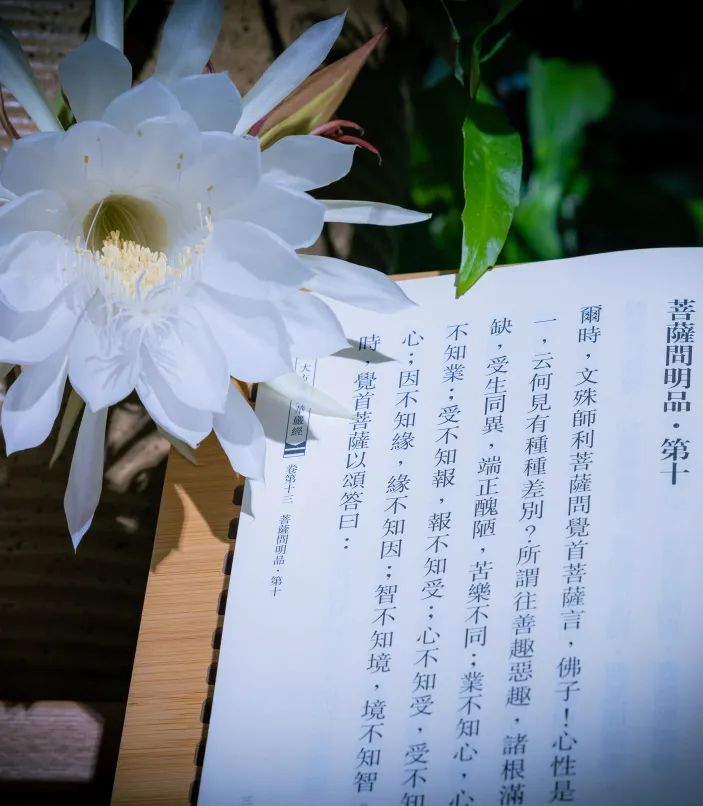 菩薩問明品・第十
爾時，文殊師利菩薩問覺首菩薩言，佛子！心性是
一，云何見有種種差別？所謂往善趣惡趣，諸根滿
缺，受生同異，端正醜陋，苦樂不同；業不知心，心
不知業；受不知報，報不知受；心不知受，受不知
心；因不知緣，緣不知因；智不知境，境不知智，
時，覺首菩薩以頌答曰：
華嚴經
卷第十三 菩薩問明品・第十